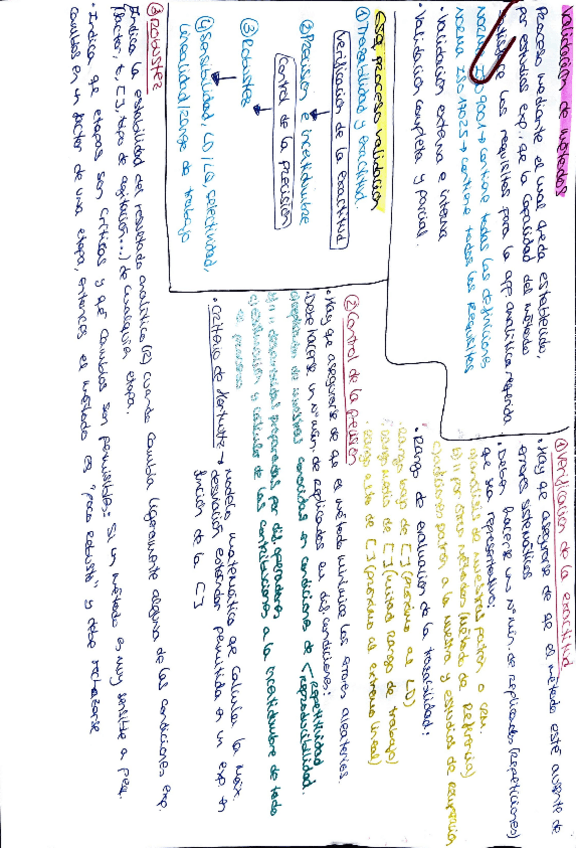 Validación de métodos
Proceso mediante el cual queda establecido,
por estudios exp., que la capacidad del método
satisface los requisitos para la app. analítica requerida
Norma ISO 9001 → contiene todas las definiciones
Norma ISO 17025 → contiene todos los requisitos
· Validación externa e interna
· Validación completa y parcial.
Esq. proceso validación
① Trazabilidad y exactitud.
Verificación de la exactitud
② Precisión e incertidumbre
Control de la precisión
③ Robustez
④ Sensibilidad, LD/LQ, selectividad,
linealidad/rango de trabajo
① Verificación de la exactitud
· Hay que asegurarse de que el método esté ausente de
errores sistemáticos
· Deben hacerse un nº mín. de replicados (repeticiones)
que sea representativo;
a) análisis de muestras patrón o CRM.
b) " por otros métodos (método de referencia)
c) adiciones patrón a la muestra y estudios de recuperación
· Rango de evaluación de la trazabilidad:
- rango bajo de [ ] (próximo al LD)
- rango medio de [ ] (mitad rango de trabajo)
- rango alto de [ ] (próximo al extremo lineal)
② Control de la precisión
· Hay que asegurarse de que el método minimice los errores aleatorios.
· Debe hacerse un nº mín. de replicados en dif. condiciones:
a) replicados de muestras conocidas en condiciones de < repetitividad
reproducibilidad.
b) " desconocidas preparadas por dif. operadores
c) estimación y cálculo de las contribuciones a la incertidumbre de todo
el proceso
· Criterio de Horwitz → modelo matemático que calcula la máx.
desviación estándar permitida en un exp en
función de la [ ]
③ Robustez
Indica la estabilidad del resultado analítico (R) cuando cambia ligeramente alguna de las condiciones exp.
(factor, t, [ ], tipo de agitación...) de cualquier etapa.
· Indica qué etapas son críticas y qué cambios son permisibles: Si un método es muy sensible a peq.
cambios en un factor de una etapa, entonces el método es "poco robusto" y debe rechazarse